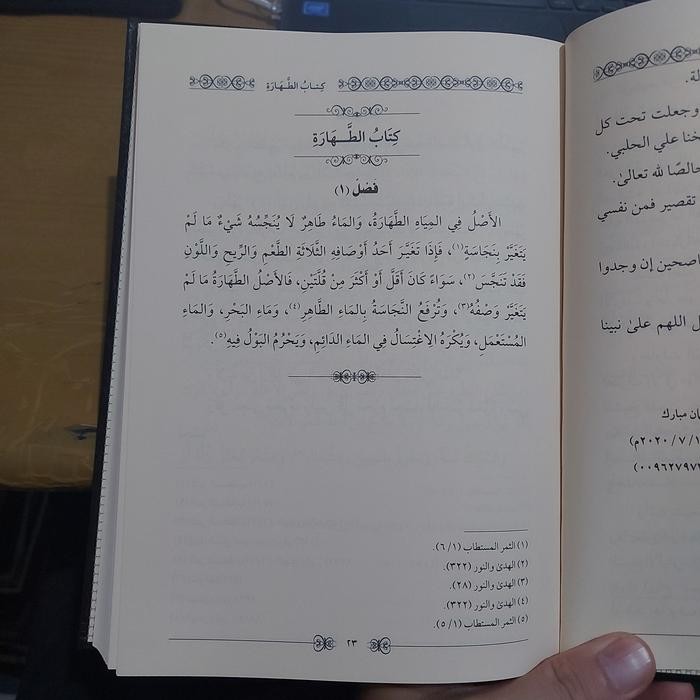 كِتَابُ الطَّهَارَةِ
كِتَابُ الطَّـــهَارَةِ
فَصْلٌ (١)
الأَصْلُ فِي المِيَاهِ الطَّهَارَةُ، وَالمَاءُ طَاهِرٌ لَا يُنَجِّسُهُ شَيْءٌ مَا لَمْ
يَتَغَيَّرْ بِنَجَاسَةٍ(١)، فَإِذَا تَغَيَّرَ أَحَدُ أَوْصَافِهِ الثَّلَاثَةِ الطَّعْمِ وَالرِّيحِ وَاللَّوْنِ
فَقَدْ تَنَجَّسَ(٢)، سَوَاءً كَانَ أَقَلَّ أَوْ أَكْثَرَ مِنْ قُلَّتَيْنِ، فَالأَصْلُ الطَّهَارَةُ مَا لَمْ
يَتَغَيَّرْ وَصْفُهُ(٣)، وَتُرْفَعُ النَّجَاسَةُ بِالمَاءِ الطَّاهِرِ(٤)، وَمَاءِ البَحْرِ، وَالمَاءِ
المُسْتَعْمَلِ، وَيُكْرَهُ الِاغْتِسَالُ فِي المَاءِ الدَّائِمِ، وَيَحْرُمُ البَوْلُ فِيهِ(٥).
(١) الثمر المستطاب (١/ ٦).
(٢) الهدىٰ والنور (٣٢٢).
(٣) الهدىٰ والنور (٢٨).
(٤) الهدىٰ والنور (٣٢٢).
(٥) الثمر المستطاب (١/ ٥).
٢٣
لة.
وجعلت تحت كل
خنا علي الحلبي.
خالصًا لله تعالىٰ.
تقصير فمن نفسي
اصحين إن وجدوا
ل اللهم علىٰ نبينا
ان مبارك
١/ ٧/ ٢٠٢٠م)
(٠٠٩٦٢٧٩٧